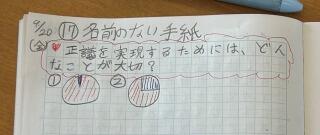 9/20 ⑰ 名前のない手紙
(金) ♥ 正義を実現するためには、どん
なことが大切?
① ②